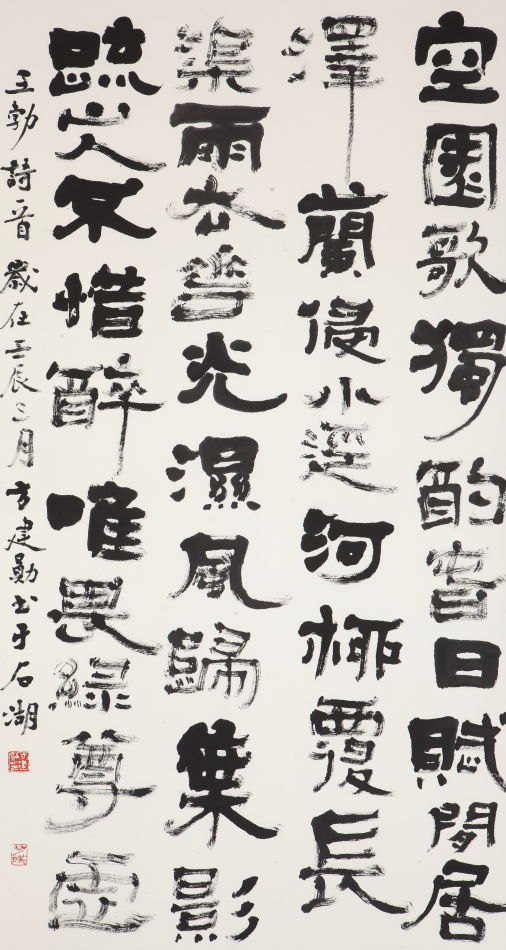 空園歌獨酌春日賦閒居
澤蘭侵小逕河柳覆長
渠雨去花光濕風歸葉影
疏山人不惜醉唯畏綠尊虛
王勃詩一首歲在壬辰三月方建勛书于石湖